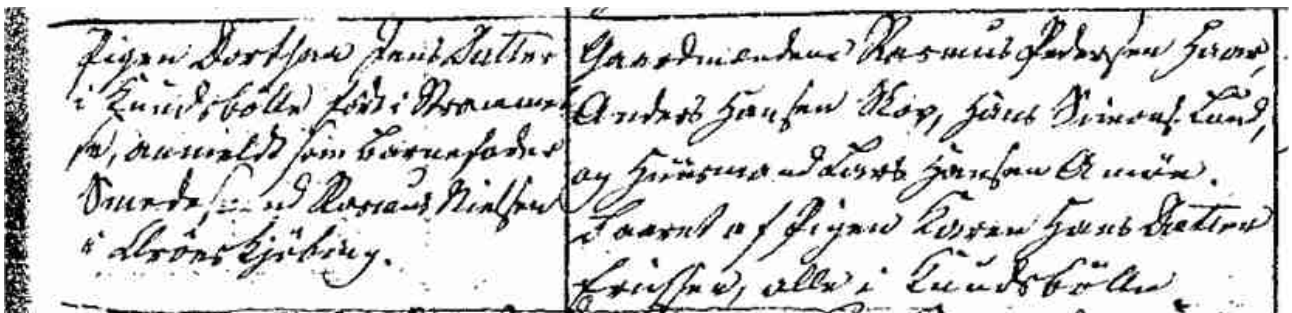 Pigen Dorthea Jens Datter
i Knudsbølle født i Stramme
se, anmeldt som Barnefader
Smedes[vend] Rasmus Nielsen
i Ærøes Kjøbing.
Gaardmændene Rasmus Pedersen Haar,
Anders Hansen Skov, Hans Simons. Lund,
og Huusmand Lars Hansen
Baaret af Pigen Karen Hans Datter
Erichsen, alle i Knudsbølle